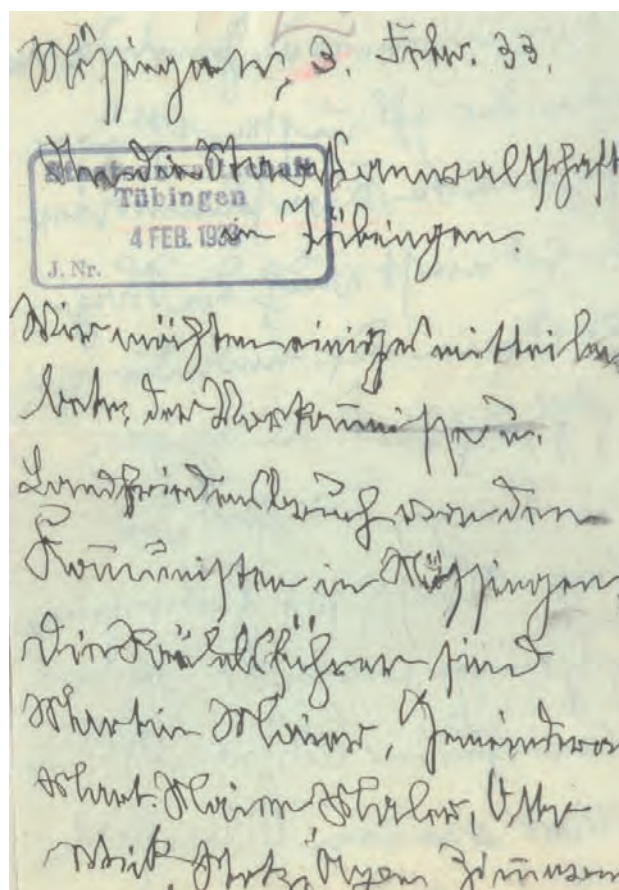 Mössingen, 3. Febr. 33.
Staatsanwaltschaft
Tübingen
4 FEB. 1933
J. Nr.
An die Staatsanwaltschaft
in Tübingen.
Wir möchten einiges mitteilen
betr. der Vorkomnisse u.
Landfriedensbruch von den
Komunisten in Mössingen,
die Rädelsführer sind
Martin Maier, Gemeindera
Mart. Maier Maler, Otto